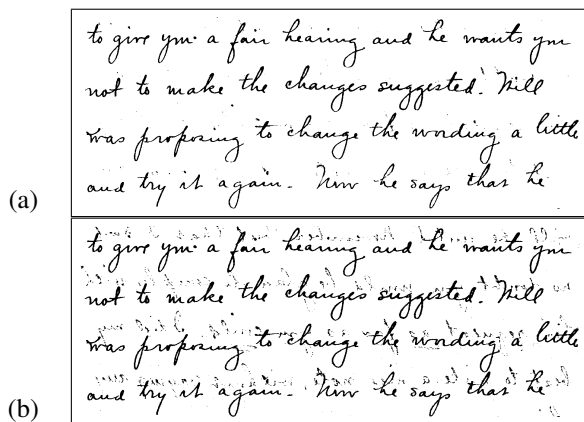 (a)
to give you a fair hearing and he wants you
not to make the changes suggested. Will
was proposing to change the wording a little
and try it again. Now he says that he
(b)
to give you a fair hearing and he wants you
not to make the changes suggested. Will
was proposing to change the wording a little
and try it again. Now he says that he